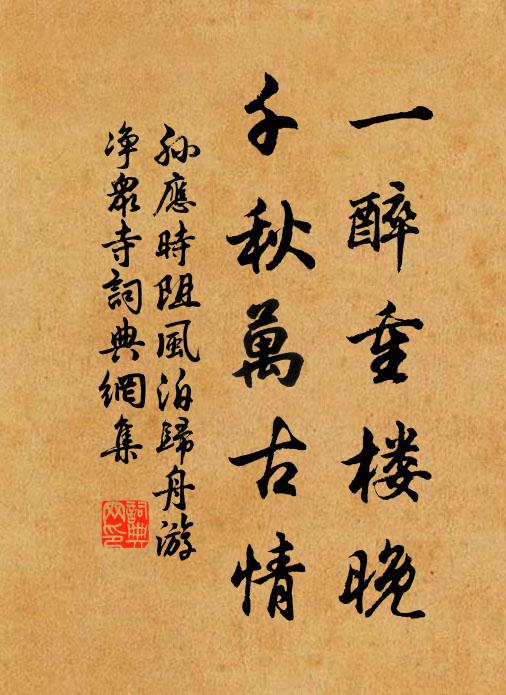 一醉重楼晚
千秋萬古情
孙應時阻風泊歸舟游
净衆寺詞典網集
詞典网印